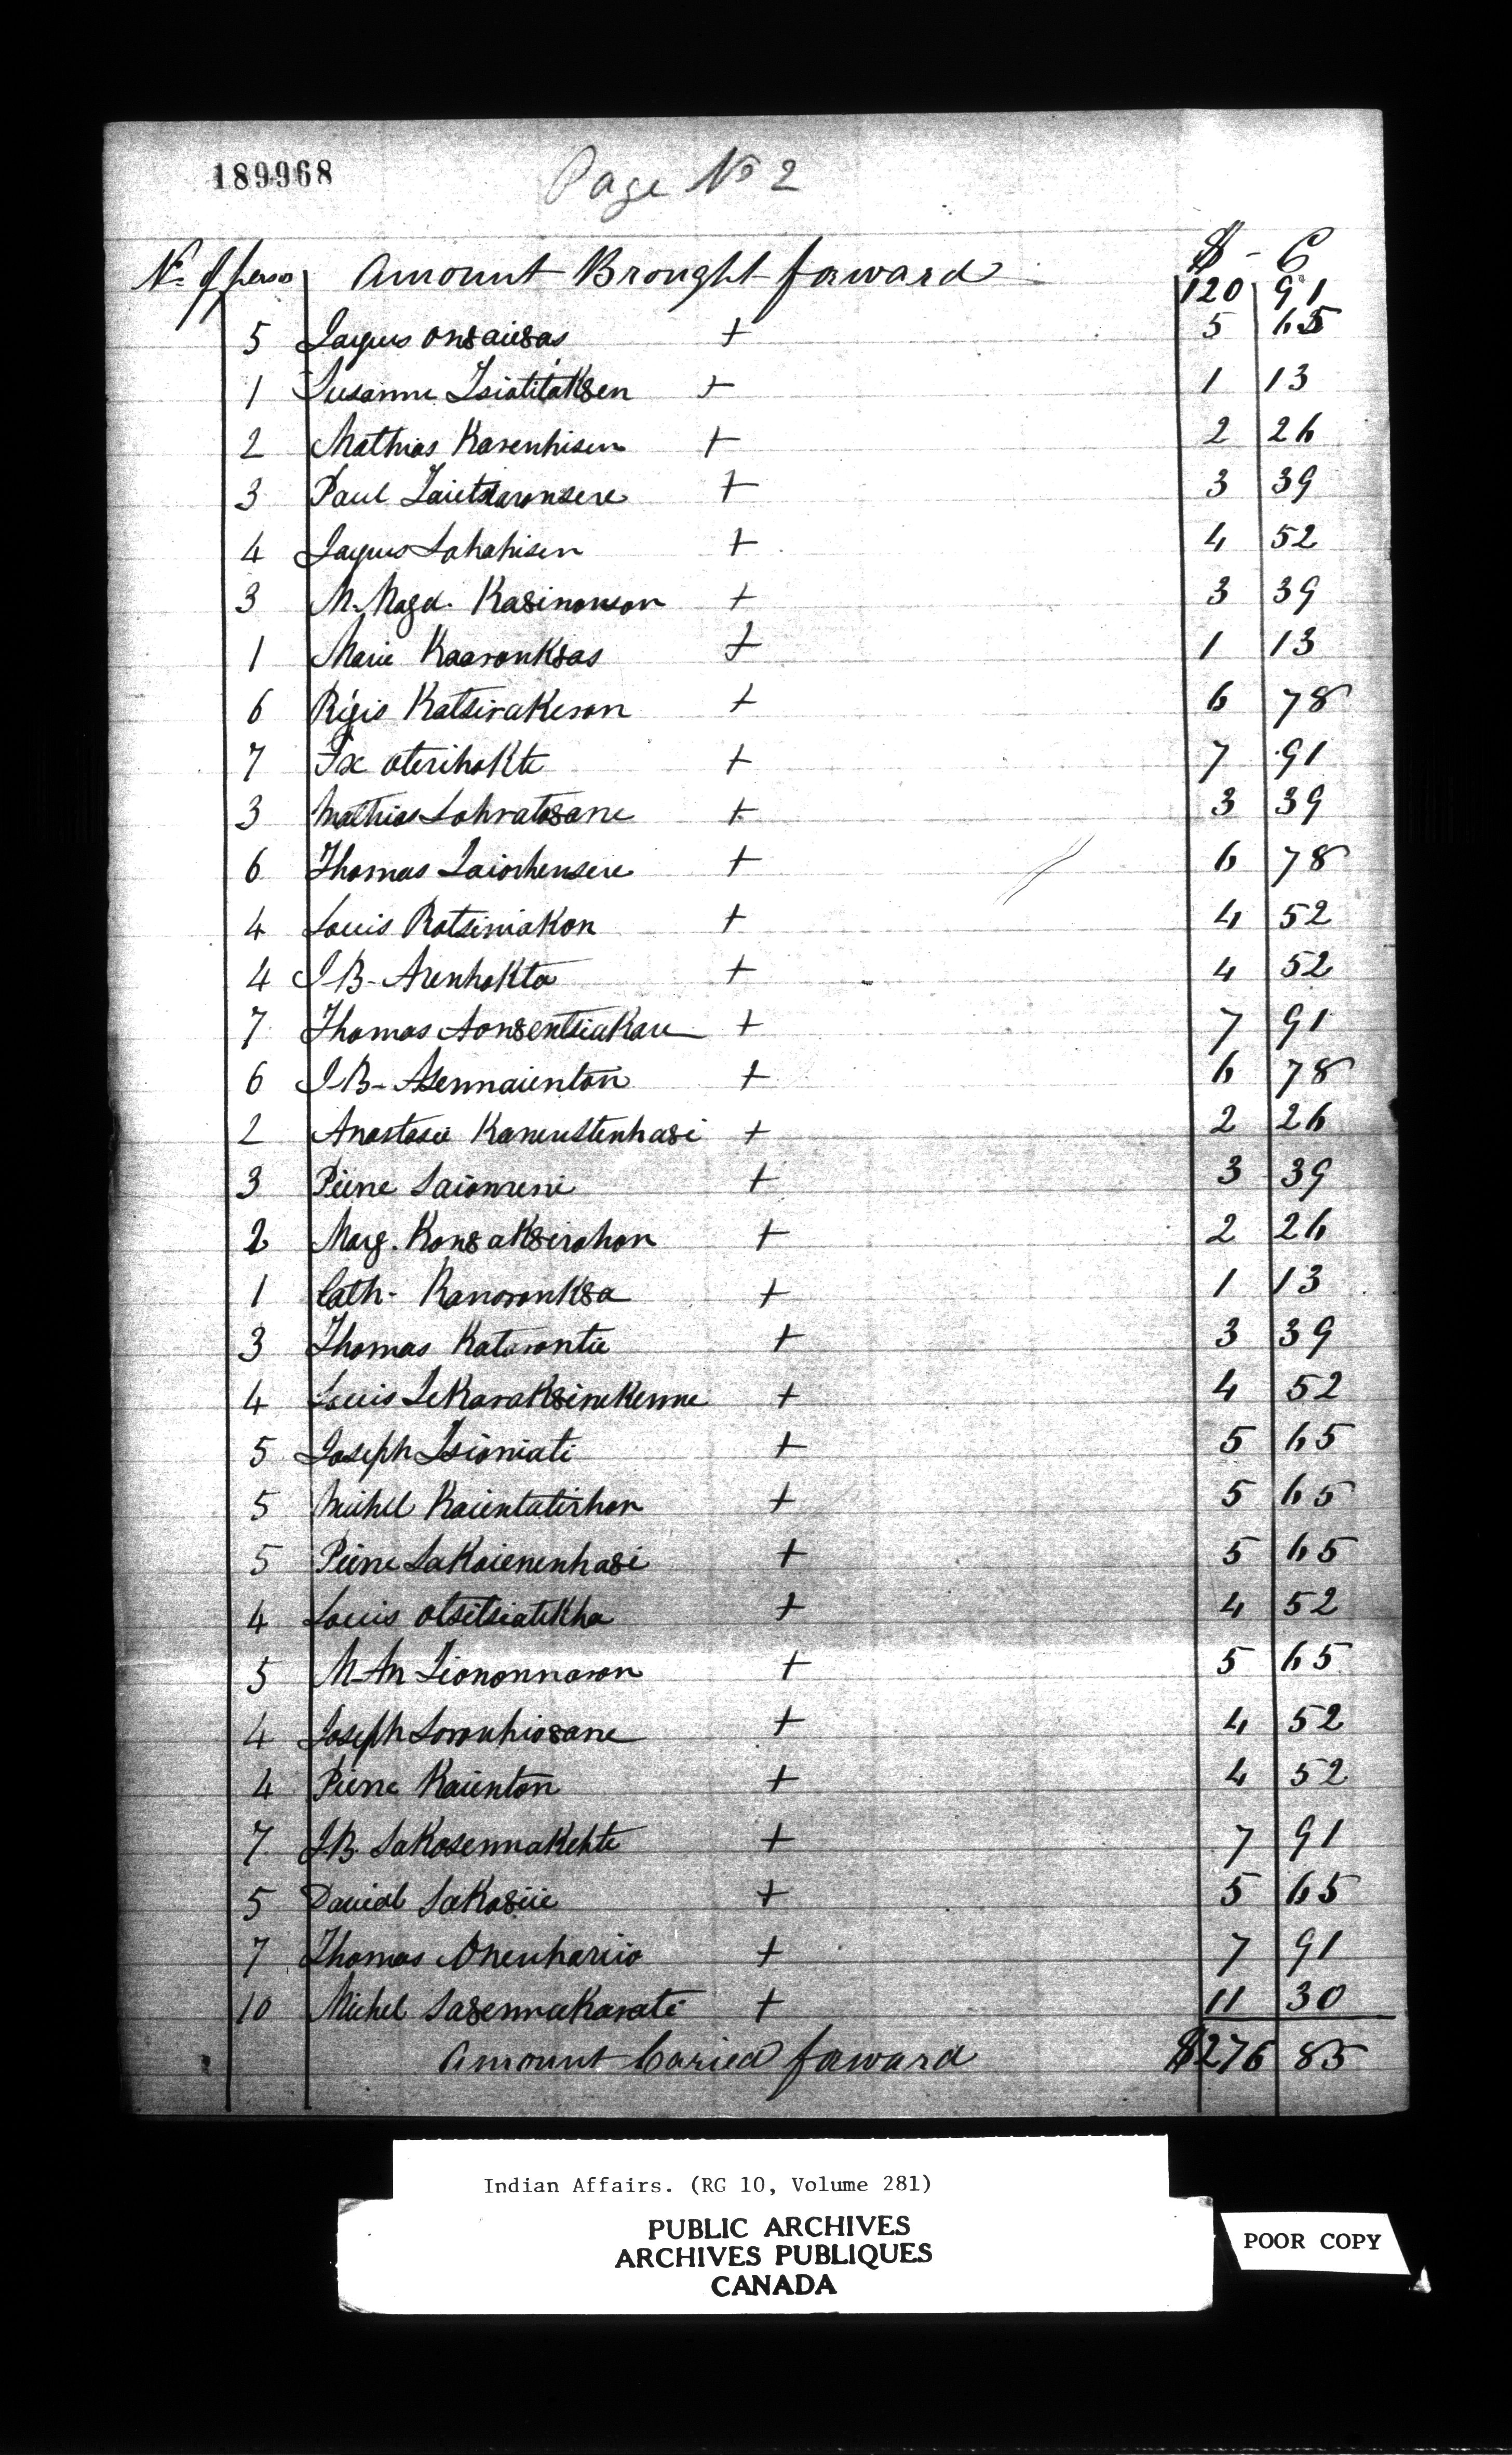 189968
Page No 2
No of perso Amount Brought forward $ - C
120 91
5 Jaques Onsaiusas + 5 65
1 Susanne Tsiatitak8en + 1 13
2 Mathias Karenhisen + 2 26
3 Paul + 3 39
4 Jaques Sahahisen + 4 52
3 M. Magd. Ka8inonson + 3 39
1 Marie Kaaronk8as + 1 13
6 Régis Katsirakeron + 6 78
7 Fx oterihokte + 7 91
3 Mathias Sohrato8ane + 3 39
6 Thomas + 6 78
4 Louis Ratsiniakon + 4 52
4 JB- Arenhokta + 4 52
7 Thomas + 7 91
6 JB- Asennaienton + 6 78
2 Anastasie + 2 26
3 Pierre + 3 39
2 Marg. Kon8ak8irohon + 2 26
1 Cath- Kanoronk8a + 1 13
3 Thomas Katarontie + 3 39
4 Louis + 4 52
5 Joseph Tsioniati + 5 65
5 Michel Kaientatirhon + 5 65
5 Pierre Sakaienenha8i + 5 65
4 Louis otsitsiatekha + 4 52
5 M-An Tiononnaron + 5 65
4 Joseph Soronhio8ane + 4 52
4 Pierre Kaienton + 4 52
7 J.B. Sako8ennakehte + 7 91
5 David + 5 65
7 Thomas Onenhariio + 7 91
10 Michel Sa8ennakarati + 11 30
Amount Caried forward $276 85
Indian Affairs. (RG 10, Volume 281)
PUBLIC ARCHIVES
ARCHIVES PUBLIQUES
CANADA
POOR COPY